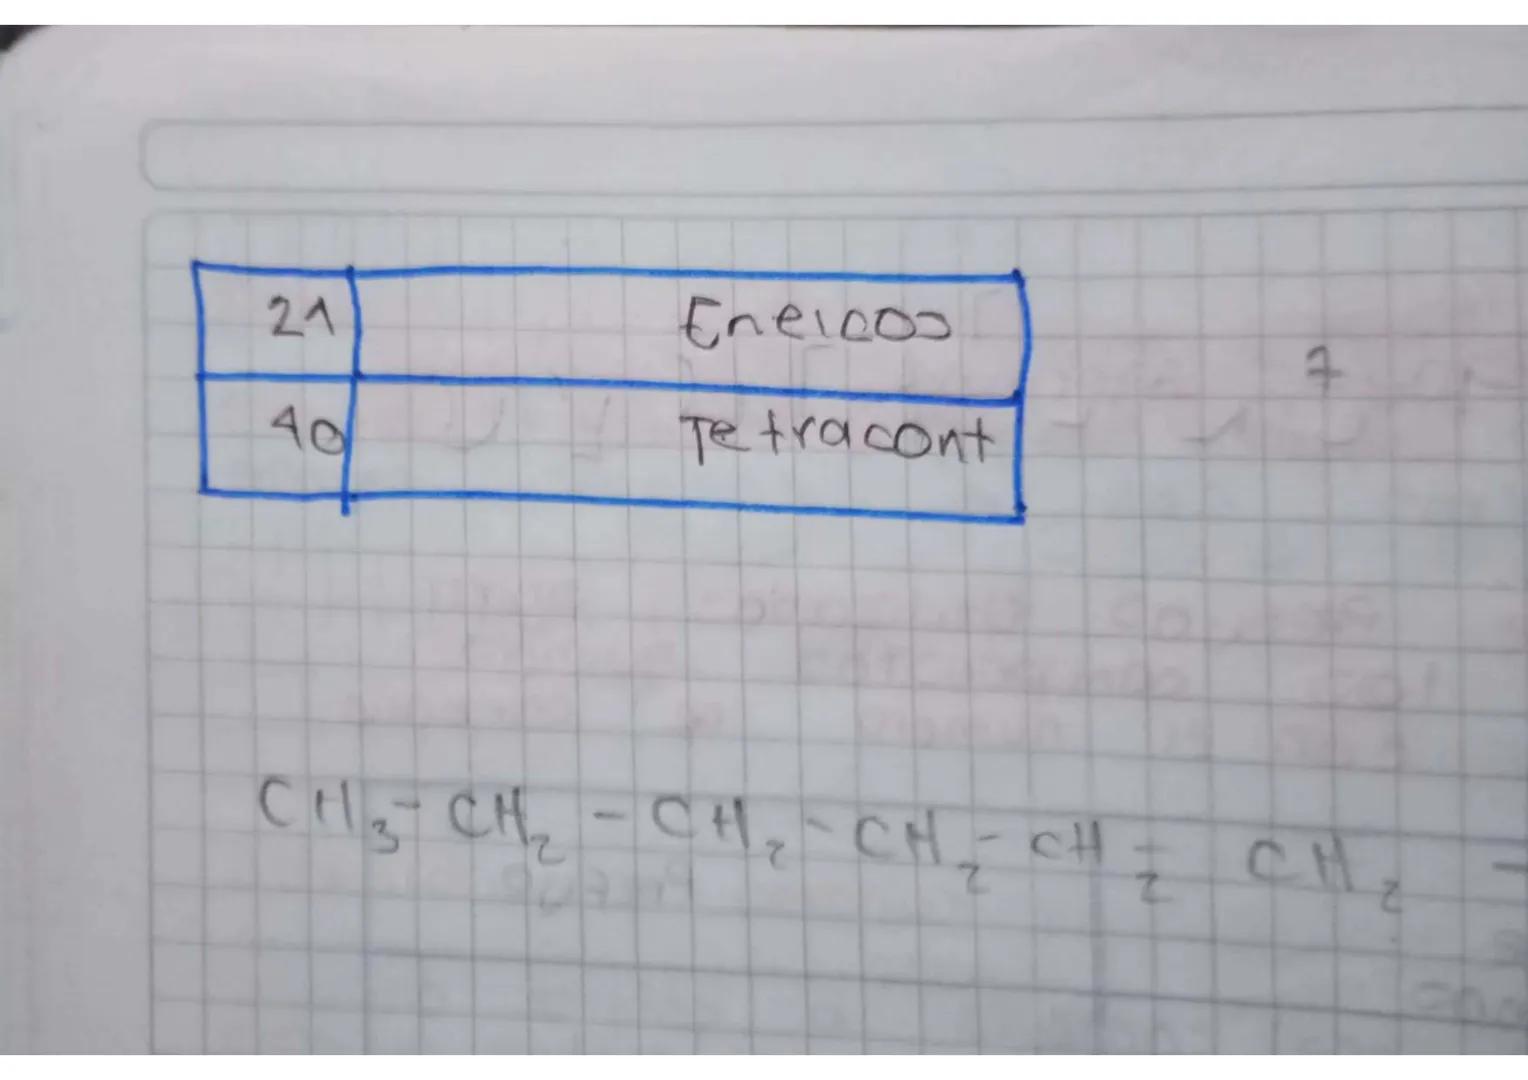 21 Eneicos
7
40 Tetracont
CH₃ - CH₂ - CH₂ - CH₂ - CH₂ - CH₂ -